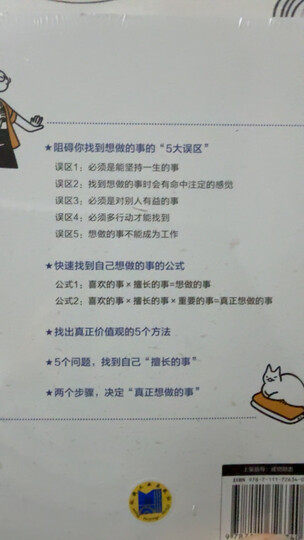 ★阻碍你找到想做的事的“5大误区”
误区1：必须是能坚持一生的事
误区2：找到想做的事时会有命中注定的感觉
误区3：必须是对别人有益的事
误区4：必须多行动才能找到
误区5：想做的事不能成为工作
★快速找到自己想做的事的公式
公式1：喜欢的事×擅长的事=想做的事
公式2：喜欢的事×擅长的事×重要的事=真正想做的事
★找出真正价值观的5个方法
★5个问题，找到自己“擅长的事”
★两个步骤，决定“真正想做的事”
上架指导：成功励志
ISBN 978-7-111-72434-